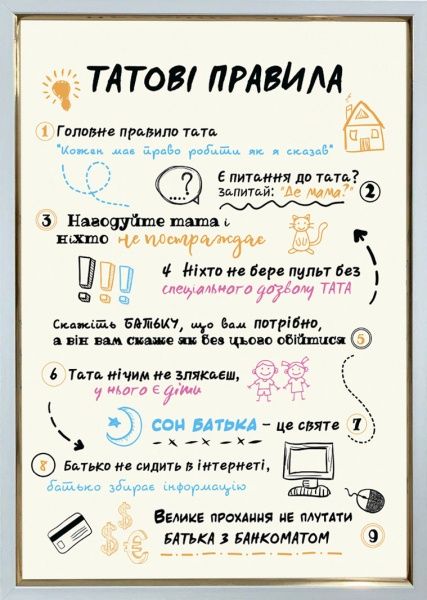 ТАТОВІ ПРАВИЛА
1 Головне правило тата
"Кожен має право робити як я сказав"
Є питання до тата?
запитай: "Де мама?" 2
3 Нагодуйте тата і
ніхто не постраждає
4 Ніхто не бере пульт без
спеціального дозволу ТАТА
Скажіть БАТЬКУ, що вам потрібно,
а він вам скаже як без цього обійтися 5
6 Тата нічим не злякаєш,
у нього Є діти
СОН БАТЬКА – це святе 7
8 Батько не сидить в інтернеті,
батько збирає інформацію
Велике прохання не плутати
БАТЬКА З БАНКОМАТОМ 9